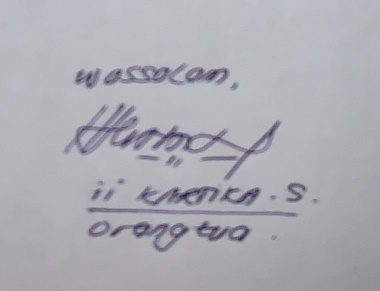 wassalam,
ii KARTIKA . S.
orangtua .